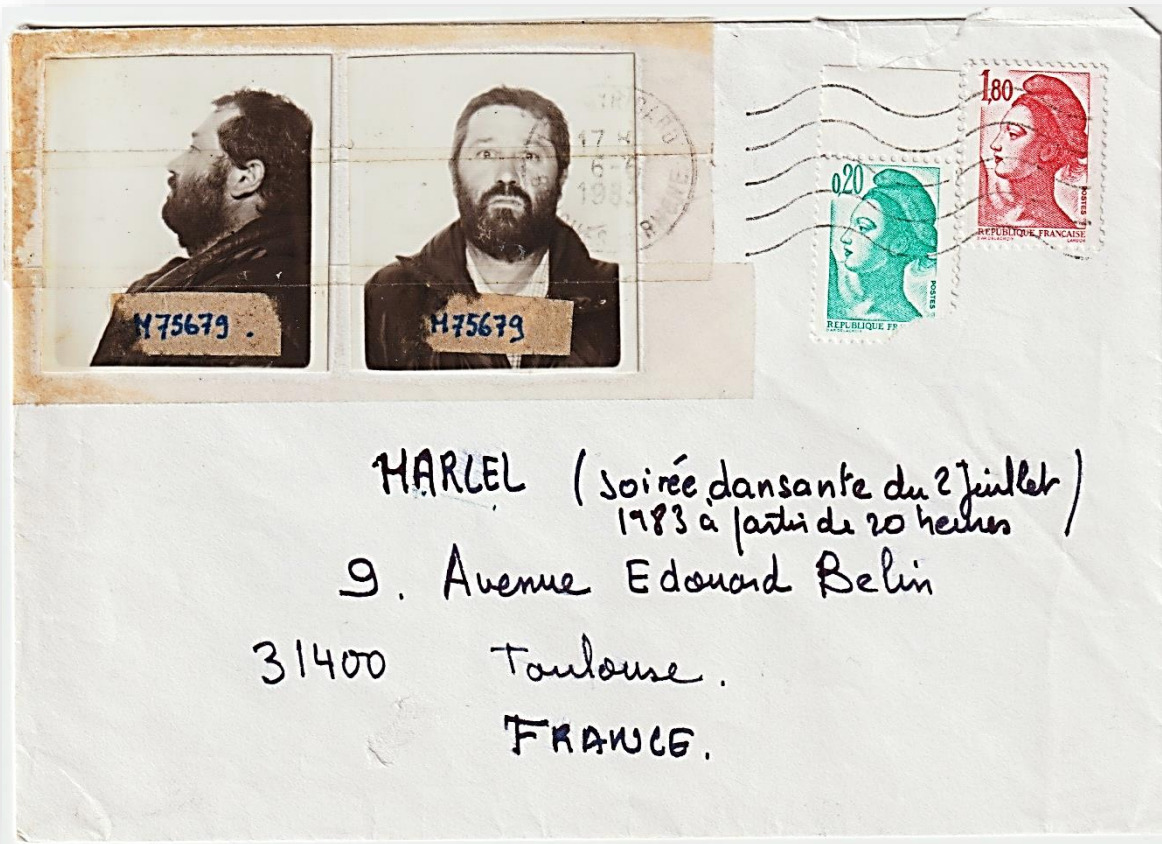 M75679.
M75679
17 H
1983
1,80
POSTES
REPUBLIQUE FRANCAISE
0,20
POSTES
REPUBLIQUE FR
MARCEL (soirée dansante du 2 Juillet)
1983 à partir de 20 heures
9. Avenue Edouard Belin
31400 Toulouse.
FRANCE.